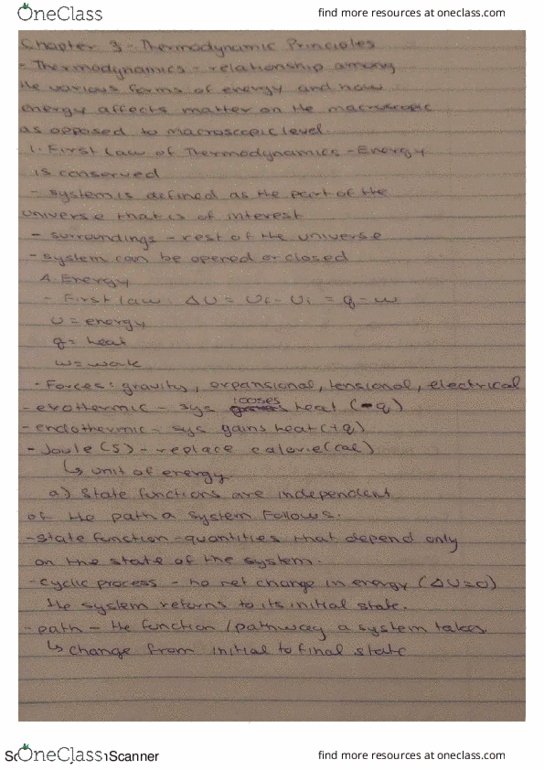 OneClass find more resources at oneclass.com
Chapter 3 - Thermodynamic Principles
- Thermodynamics - relationship among
the various forms of energy and how
energy affects matter on the macroscopic
as opposed to macroscopic level.
1. First Law of Thermodynamics - Energy
is conserved
- system is defined as the part of the
universe that is of interest
- surroundings - rest of the universe
- system can be opened or closed
A. Energy
- First law: ΔU = Uf - Ui = q - w
U = energy
q = heat
w = work
- Forces: gravity, expansional, tensional, electrical
- exothermic - sys looses heat (-q)
- endothermic - sys gains heat (+q)
- Joule (J) - replace calorie (cal)
↳ unit of energy.
a) State functions are independent
of the path a system follows.
- state function - quantities that depend only
on the state of the system.
- cyclic process - no net change in energy (ΔU=0)
the system returns to its initial state.
- path - the function / pathway a system takes
↳ change from initial to final state
OneClass Scanner find more resources at oneclass.com